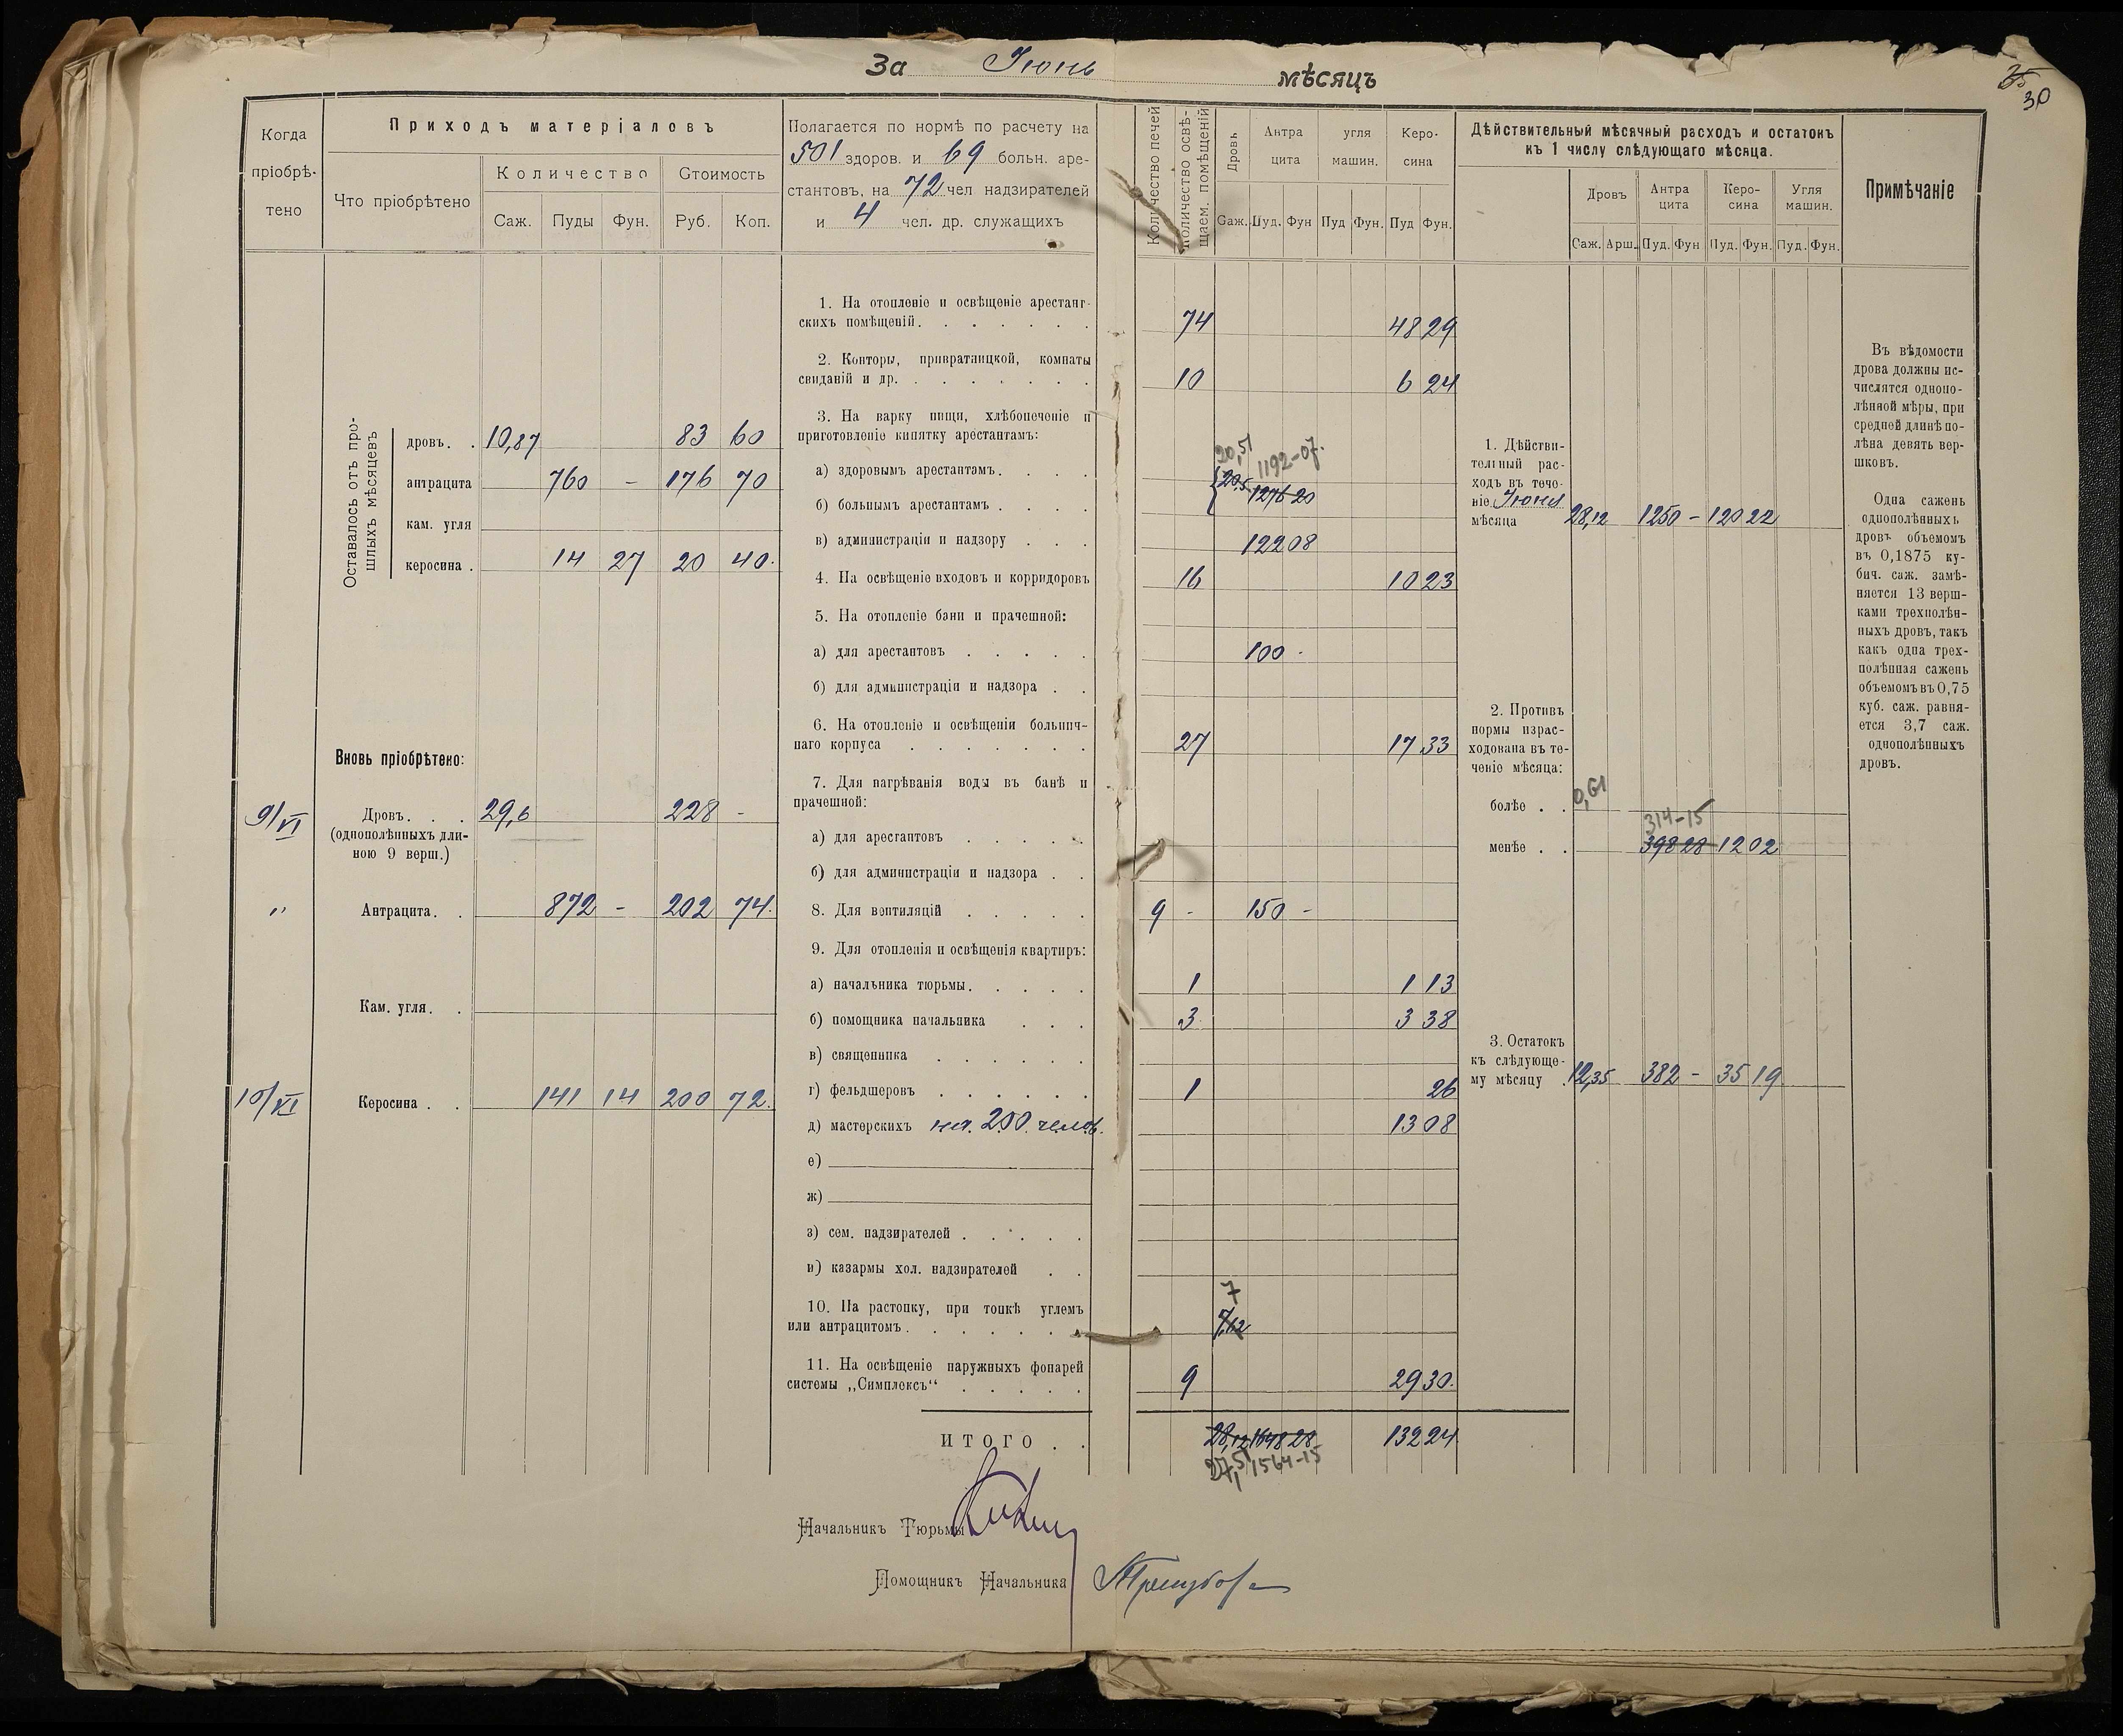 За Іюнь мѣсяцъ
35
30
Когда пріобрѣ-тено
Приходъ матеріаловъ
Что пріобрѣтено
Количество
Стоимость
Саж. Пуды Фун. Руб. Коп.
Полагается по нормѣ по расчету на
501 здоров. и 69 больн. аре-
стантовъ, на 72 чел надзирателей
и 4 чел. др. служащихъ
Количество печей
Количество освѣ-щаем. помѣщеній
Дровъ
Антра цита
угля машин.
Керо-сина
Саж. Пуд. Фун Пуд Фун. Пуд Фун.
Дѣйствительный мѣсячный расходъ и остатокъ
къ 1 числу слѣдующаго мѣсяца.
Дровъ
Антра цита
Керо-сина
Угля машин.
Саж. Арш. Пуд. Фун Пуд. Фун. Пуд. Фун.
Примѣчаніе
Оставалось отъ про-
шлыхъ мѣсяцевъ
дровъ. . 10,87 83 60
антрацита 760 - 176 70
кам. угля
керосина . 14 27 20 40.
Вновь пріобрѣтено:
9/VI Дровъ. . . 29,6 228 -
(однополѣнныхъ дли-
ною 9 верш.)
" Антрацита. . 872 - 202 74.
Кам. угля. .
10/VI Керосина . . 141 14 200 72.
1. На отопленіе и освѣщеніе арестант-
скихъ помѣщеній. . . . . . . 74 48 29
2. Конторы, привратницкой, комнаты
свиданій и др. . . . . . . . 10 6 24
3. На варку пищи, хлѣбопеченіе и
приготовленіе кипятку арестантамъ:
20,51 1192-07.
а) здоровымъ арестантамъ. . . .
20,5 1276 20
б) больнымъ арестантамъ . . . .
в) администраціи и надзору . . . 122 08
4. На освѣщеніе входовъ и корридоровъ 16 10 23
5. На отопленіе бани и прачешной:
а) для арестантовъ . . . . . 100 -
б) для администраціи и надзора . .
6. На отопленіе и освѣщеніи больнич-
наго корпуса . . . . . . . 27 17 33
7. Для нагрѣванія воды въ банѣ и
прачешной:
а) для арестантовъ . . . . .
б) для администраціи и надзора . .
8. Для вентиляцій . . . . . 9 - 150 -
9. Для отопленія и освѣщенія квартиръ:
а) начальника тюрьмы. . . . . 1 1 13
б) помощника начальника . . . 3. 3 38
в) священника . . . . . .
г) фельдшеровъ . . . . . . 1 26
д) мастерскихъ на. 200. челов. 13 08
е)
ж)
з) сем. надзирателей . . . . .
и) казармы хол. надзирателей . .
10. На растопку, при топкѣ углемъ
7
или антрацитомъ . . . . . . . 7,12
11. На освѣщеніе наружныхъ фонарей
системы „Симплексъ“ . . . . . 9 29 30.
ИТОГО . . 28,12 1648 28 132 24
27,51 1564-15
1. Дѣйстви-
тельный рас-
ходъ въ тече-
ніе Іюня
мѣсяца 28,12 1250 - 120 22
2. Противъ
нормы израс-
ходована въ те-
ченіе мѣсяца:
болѣе . . 0,61
314-15
менѣе . . 398 28 12 02
3. Остатокъ
къ слѣдующе-
му мѣсяцу . 12,35 382 - 35 19
Въ вѣдомости
дрова должны ис-
числятся однопо-
лѣнной мѣры, при
средней длинѣ по-
лѣна девять вер-
шковъ.
Одна сажень
однополѣнныхъ
дровъ объемомъ
въ 0,1875 ку-
бич. саж. замѣ-
няется 13 верш-
ками трехполѣн-
ныхъ дровъ, такъ
какъ одна трех-
полѣнная сажень
объемомъ въ 0,75
куб. саж. равня-
ется 3,7 саж.
однополѣнныхъ
дровъ.
Начальникъ Тюрьмы
Помощникъ Начальника